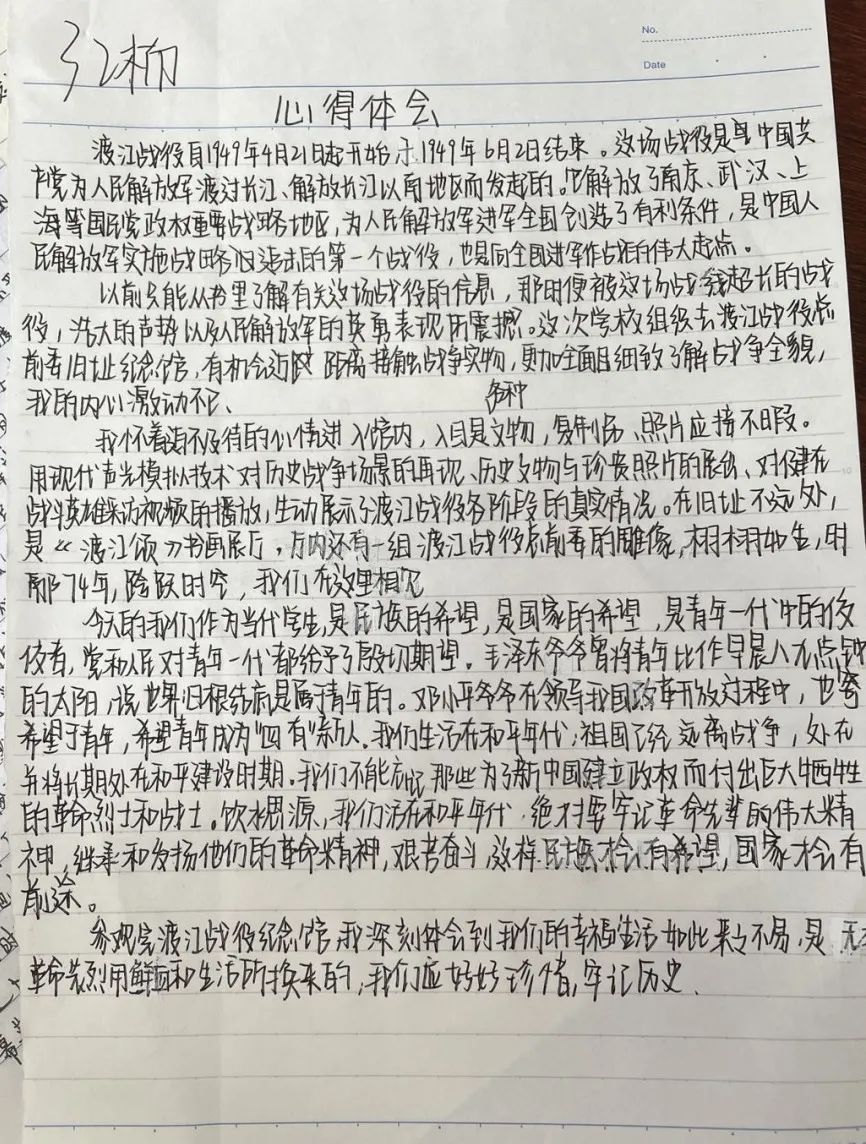 No.
Date
心得体会
渡江战役自1949年4月21日起开始,于1949年6月2日结束。这场战役是中国共
产党为人民解放军渡过长江、解放长江以南地区而发起的。它解放了南京、武汉、上
海等国民党政权重要战略地区,为人民解放军进军全国创造了有利条件,是中国人
民解放军实施战略追击的第一个战役,也是向全国进军作战的伟大起点。
以前只能从书里了解有关这场战役的信息,那时便被这场战线超长的战
役,浩大的声势以及人民解放军的英勇表现所震撼。这次学校组织去渡江战役总
前委旧址纪念馆,有机会近距离接触战争实物,更加全面且细致了解战争全貌,
我的内心激动不已、
我怀着迫不及待的心情进入馆内,入目是各种文物,复制品、照片应接不暇。
用现代声光模拟技术对历史战争场景的再现、历史文物与珍贵照片的展出、对健在
战斗英雄采访视频的播放,生动展示了渡江战役各阶段的真实情况。在旧址不远处,
是《渡江颂》书画展厅,厅内还有一组渡江战役总前委的雕像,栩栩如生,时
隔74年,跨跃时空,我们在这里相见
今天的我们作为当代学生,是民族的希望,是国家的希望,是青年一代中的佼
佼者,党和人民对青年一代都给予了殷切期望。毛泽东爷爷曾将青年比作早晨八九点钟
的太阳,说世界归根结底是属于青年的。邓小平爷爷在领导我国改革开放过程中,也寄
希望于青年,希望青年成为“四有”新人.我们生活在和平年代,祖国已经远离战争,处在
并将长期处在和平建设时期.我们不能忘记那些为了新中国建立政权而付出巨大牺牲
的革命烈士和战士。饮水思源,我们活在和平年代,绝对要牢记革命先辈的伟大精
神,继承和发扬他们的革命精神,艰苦奋斗,这样民族才会有希望,国家才会有
前途。
参观完渡江战役纪念馆,我深刻体会到我们的幸福生活如此来之不易,是无
革命先烈用鲜血和生活所换来的,我们应好好珍惜,牢记历史.